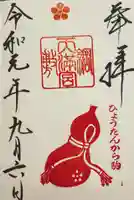 奉拝
天満宮
ひょうたんから駒
令和元年九月六日